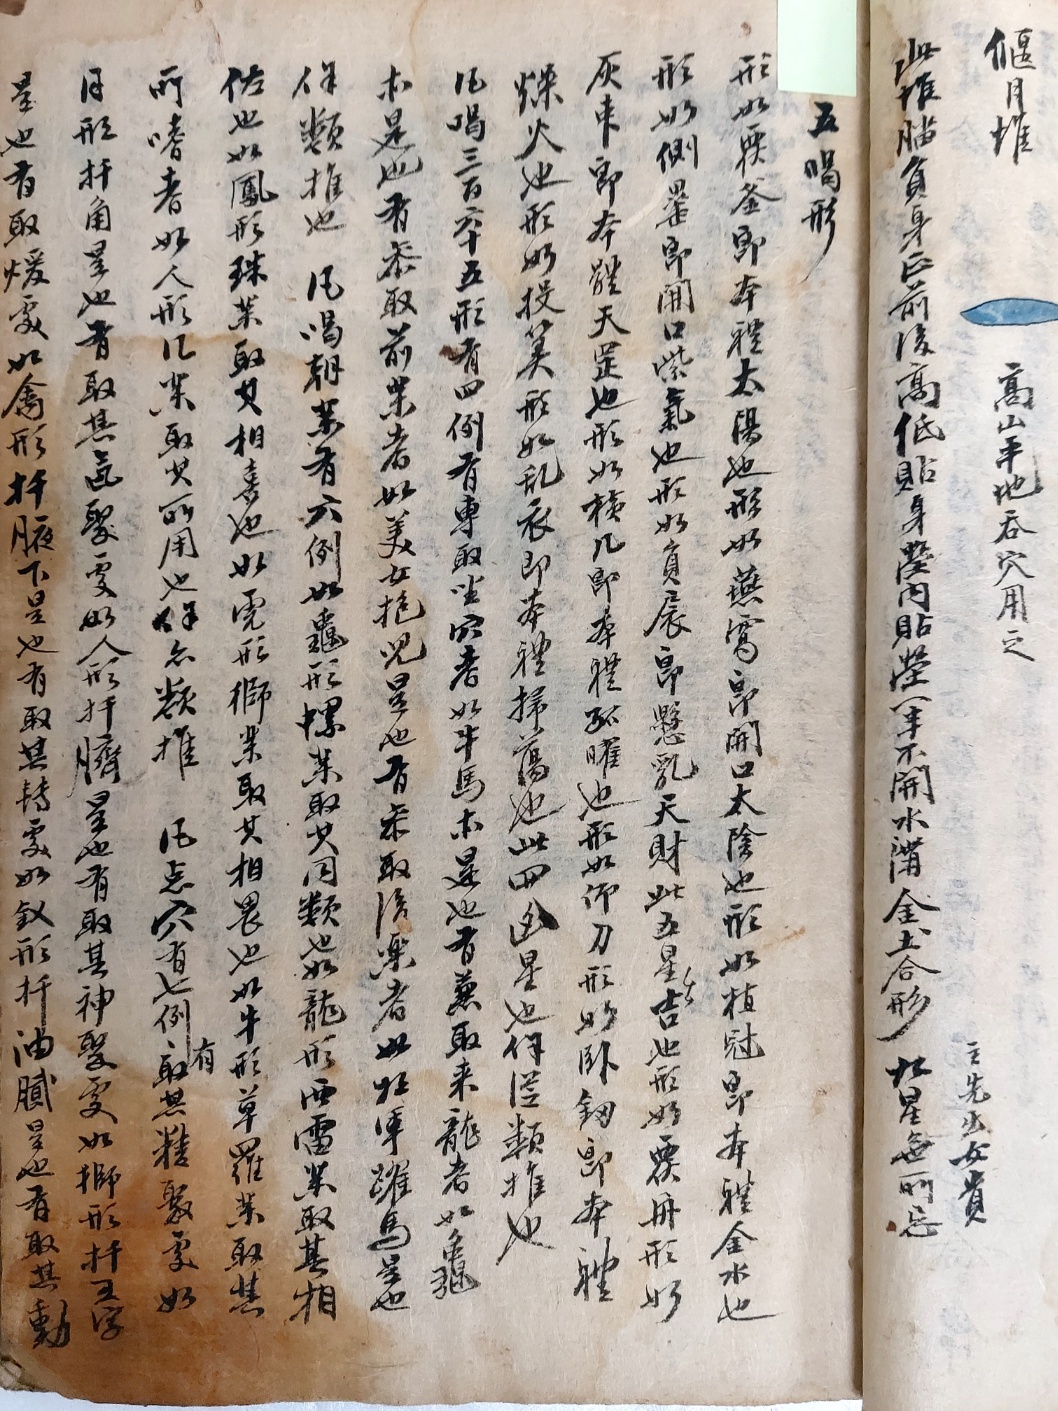 偃月堆 高山平地吞穴用之
此堆脑負身正前後高低貼身塋內貼塋一半不開水溝金土合形 此星無所忌
主先出女貴
五喝形
形如覆釜即本體太陽也形如燕窩即開口太陰也形如植冠即本體金水也
形如側罍即開口紫氣也形如負扆即懸乳天財此五星吉也形如覆舟形如
灰車即本體天罡也形如橫几即本體孤曜也形如仰刀形如臥釰即本體
燥火也形如投筭形如乱衣即本體掃蕩也此四凶星也餘從類推也
凡喝三百六十五形有四例有專取坐穴者如牛馬木是也有兼取来龍者如龜
木是也有添取前案者如美女抱兒是也有添取後楽者如將軍躍馬是也
餘類推也 凡喝朝案有六例如龜形螺案取其同類也如龍形雲雷案取其相
佐也如鳳形珠案取其相喜也如虎形獅案取其相畏也如牛形草羅案取其
所嗜者如人形几案取其所用也餘以類推 凡点穴有七例有取其精聚處如
月形扦角是也有取其氣聚處如人形扦臍是也有取其神聚處如獅形扦王字
是也有取煖處如禽形扦腋下是也有取其轉處如釵形扦油膩是也有取其動